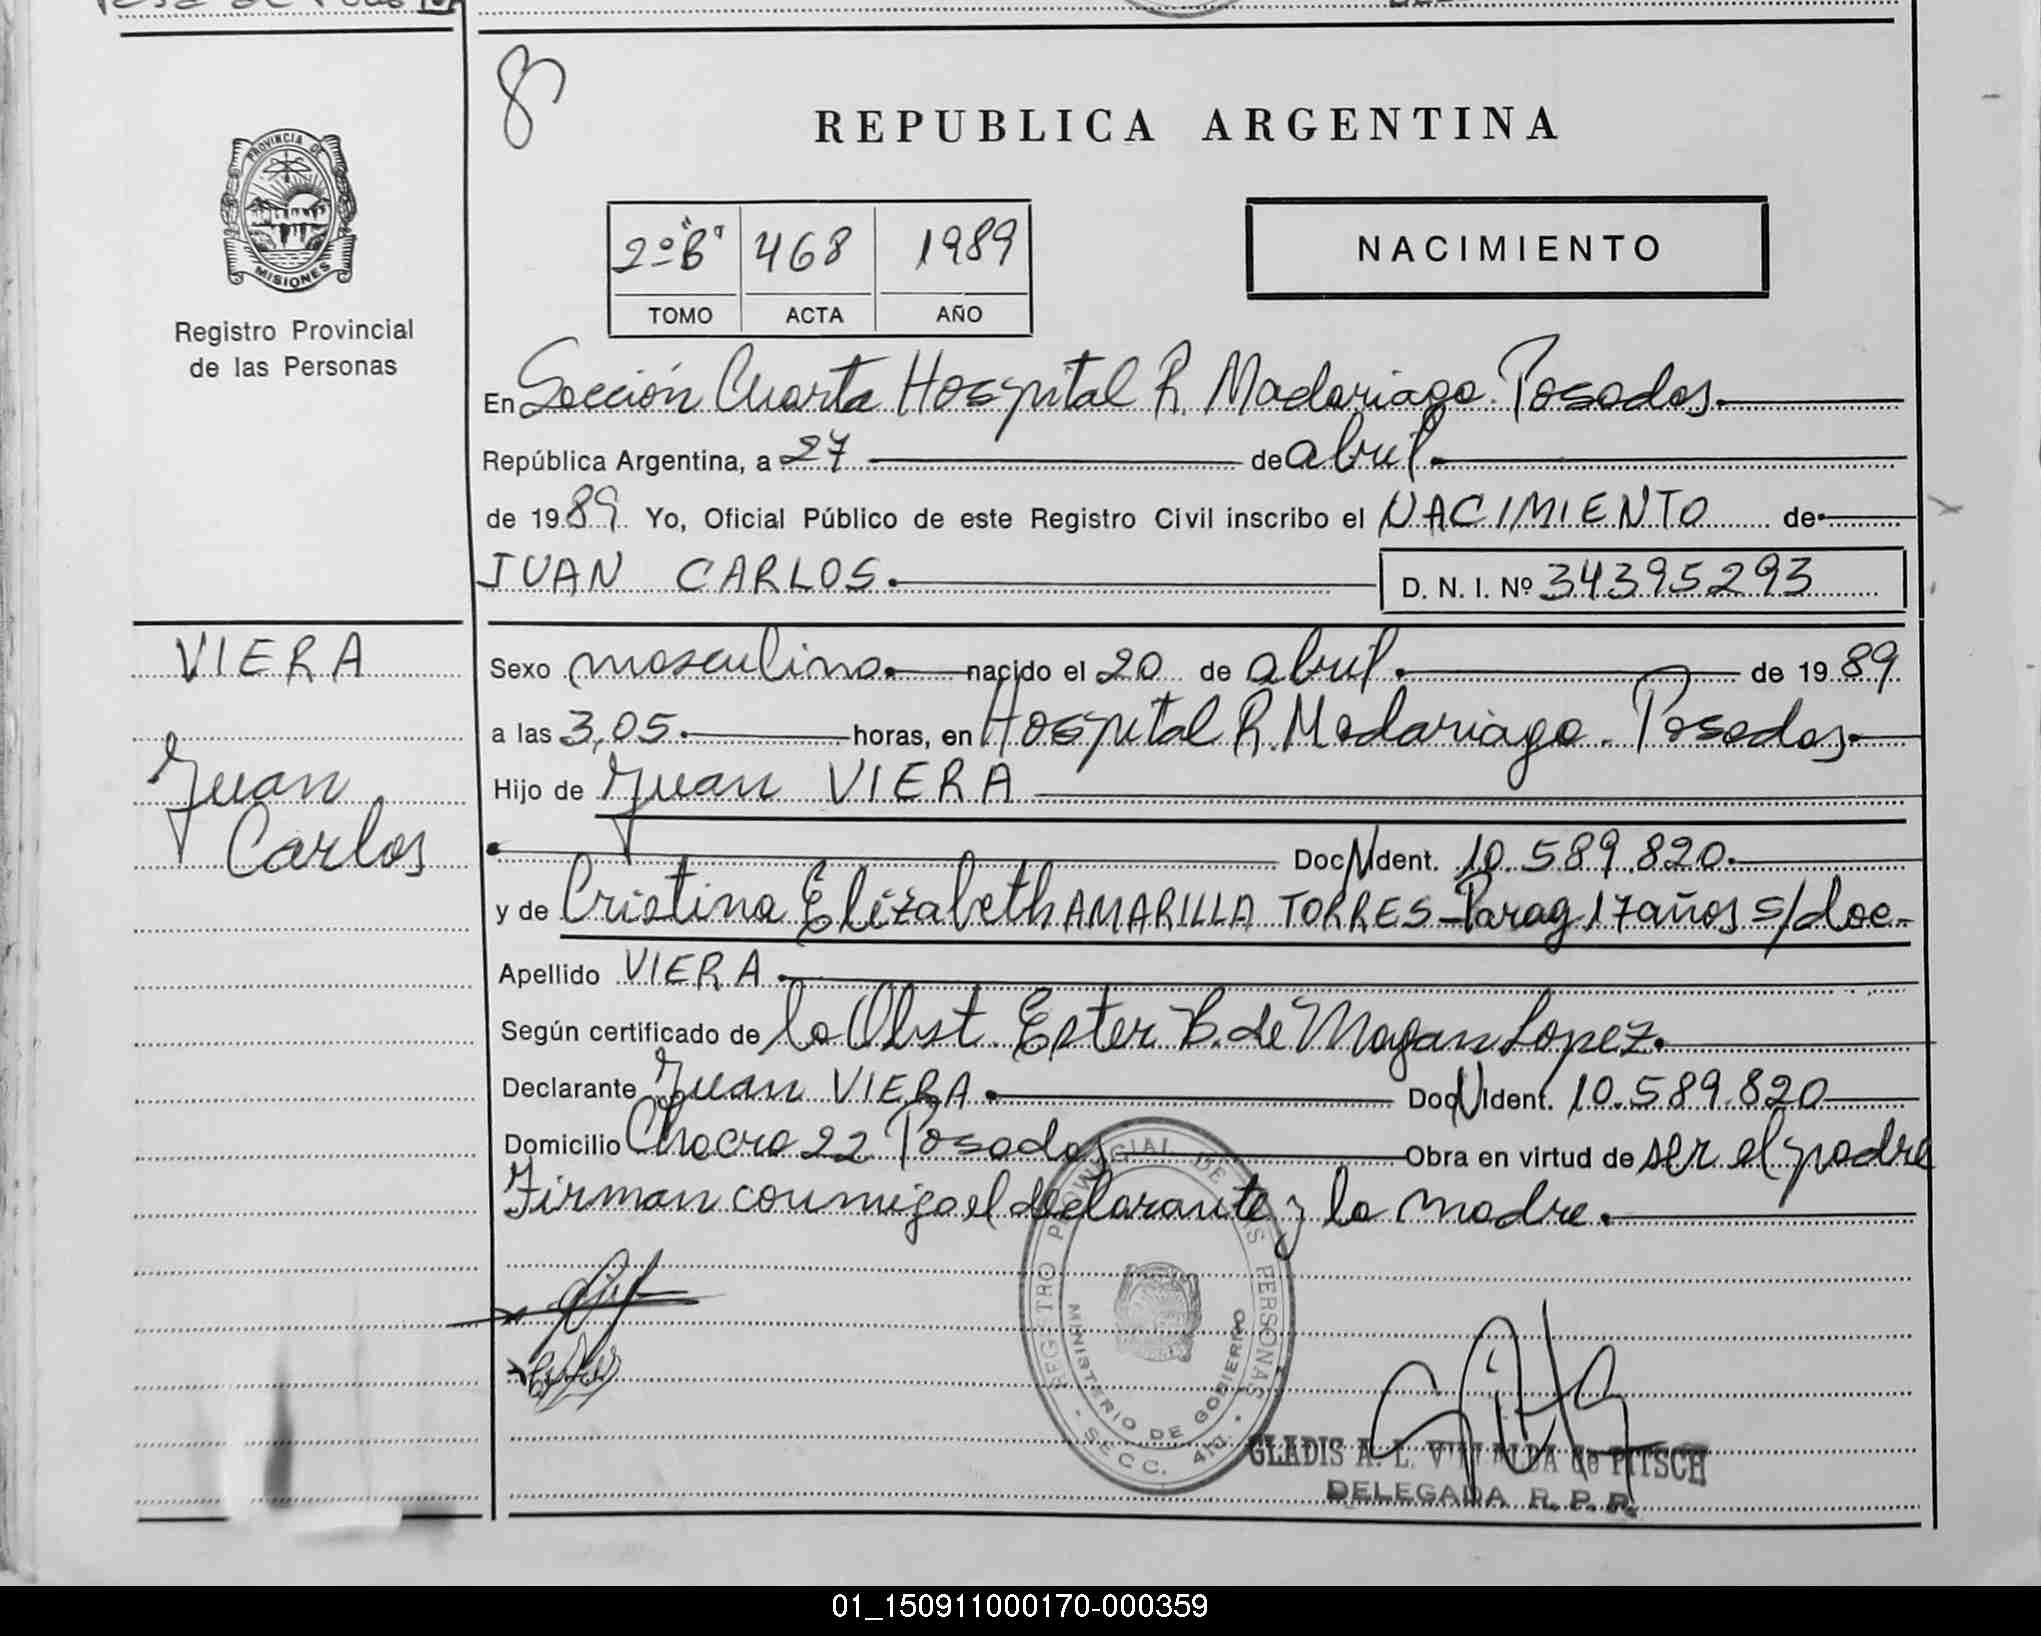 8
PROVINCIA DE
MISIONES
Registro Provincial
de las Personas
REPUBLICA ARGENTINA
2º "B" 468 1989
TOMO ACTA AÑO
NACIMIENTO
En Sección Cuarta Hospital R. Madariaga. Posadas.
República Argentina, a 27 de abril.
de 1989. Yo, Oficial Público de este Registro Civil inscribo el NACIMIENTO de
JUAN CARLOS. D. N. I. Nº 34395293
VIERA
Juan
Carlos
Sexo masculino. nacido el 20 de abril. de 1989
a las 3,05. horas, en Hospital R. Madariaga. Posadas.
Hijo de Juan VIERA
Doc N Ident. 10.589.820.
y de Cristina Elizabeth AMARILLA TORRES - Parag 17 años s/doc.
Apellido VIERA.
Según certificado de la Obst. Ester B. de Magan Lopez.
Declarante Juan VIERA. Doc N Ident. 10.589.820
Domicilio Chacra 22 Posadas Obra en virtud de ser el padre
Firman conmigo el declarante y la madre.
REGISTRO PROVINCIAL DE LAS PERSONAS
MINISTERIO DE GOBIERNO
- SECC. 4ta. -
GLADIS A. L. de PITSCH
DELEGADA R. P. P.
01_150911000170-000359